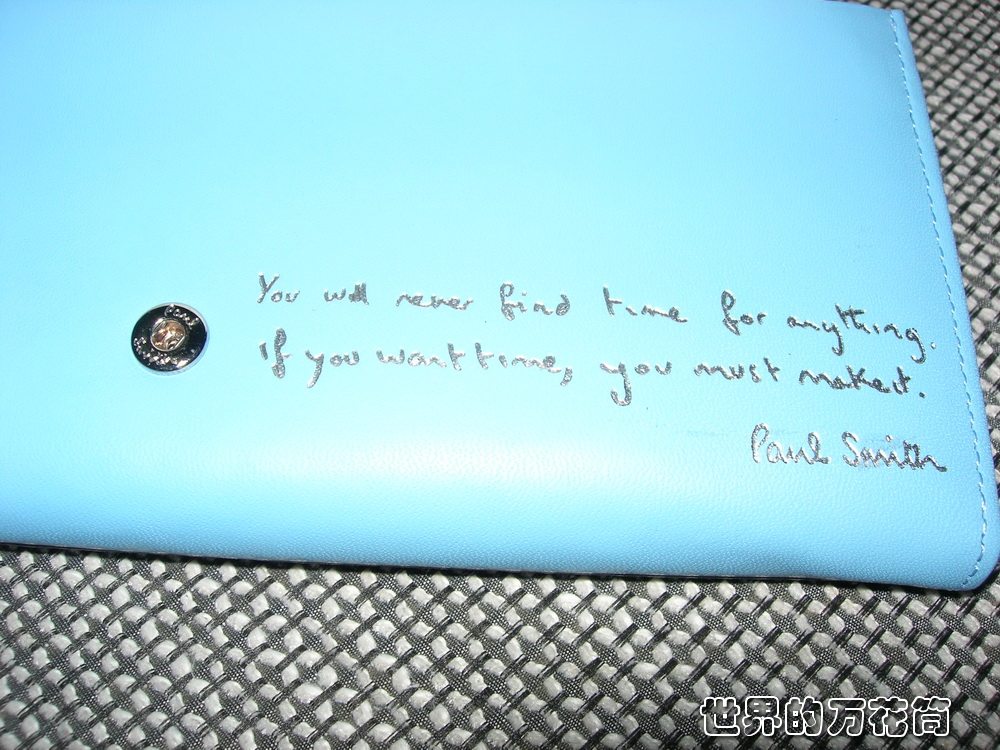 You will never find time for anything.
If you want time, you must make it.
Paul Smith
Paul
世界的万花筒